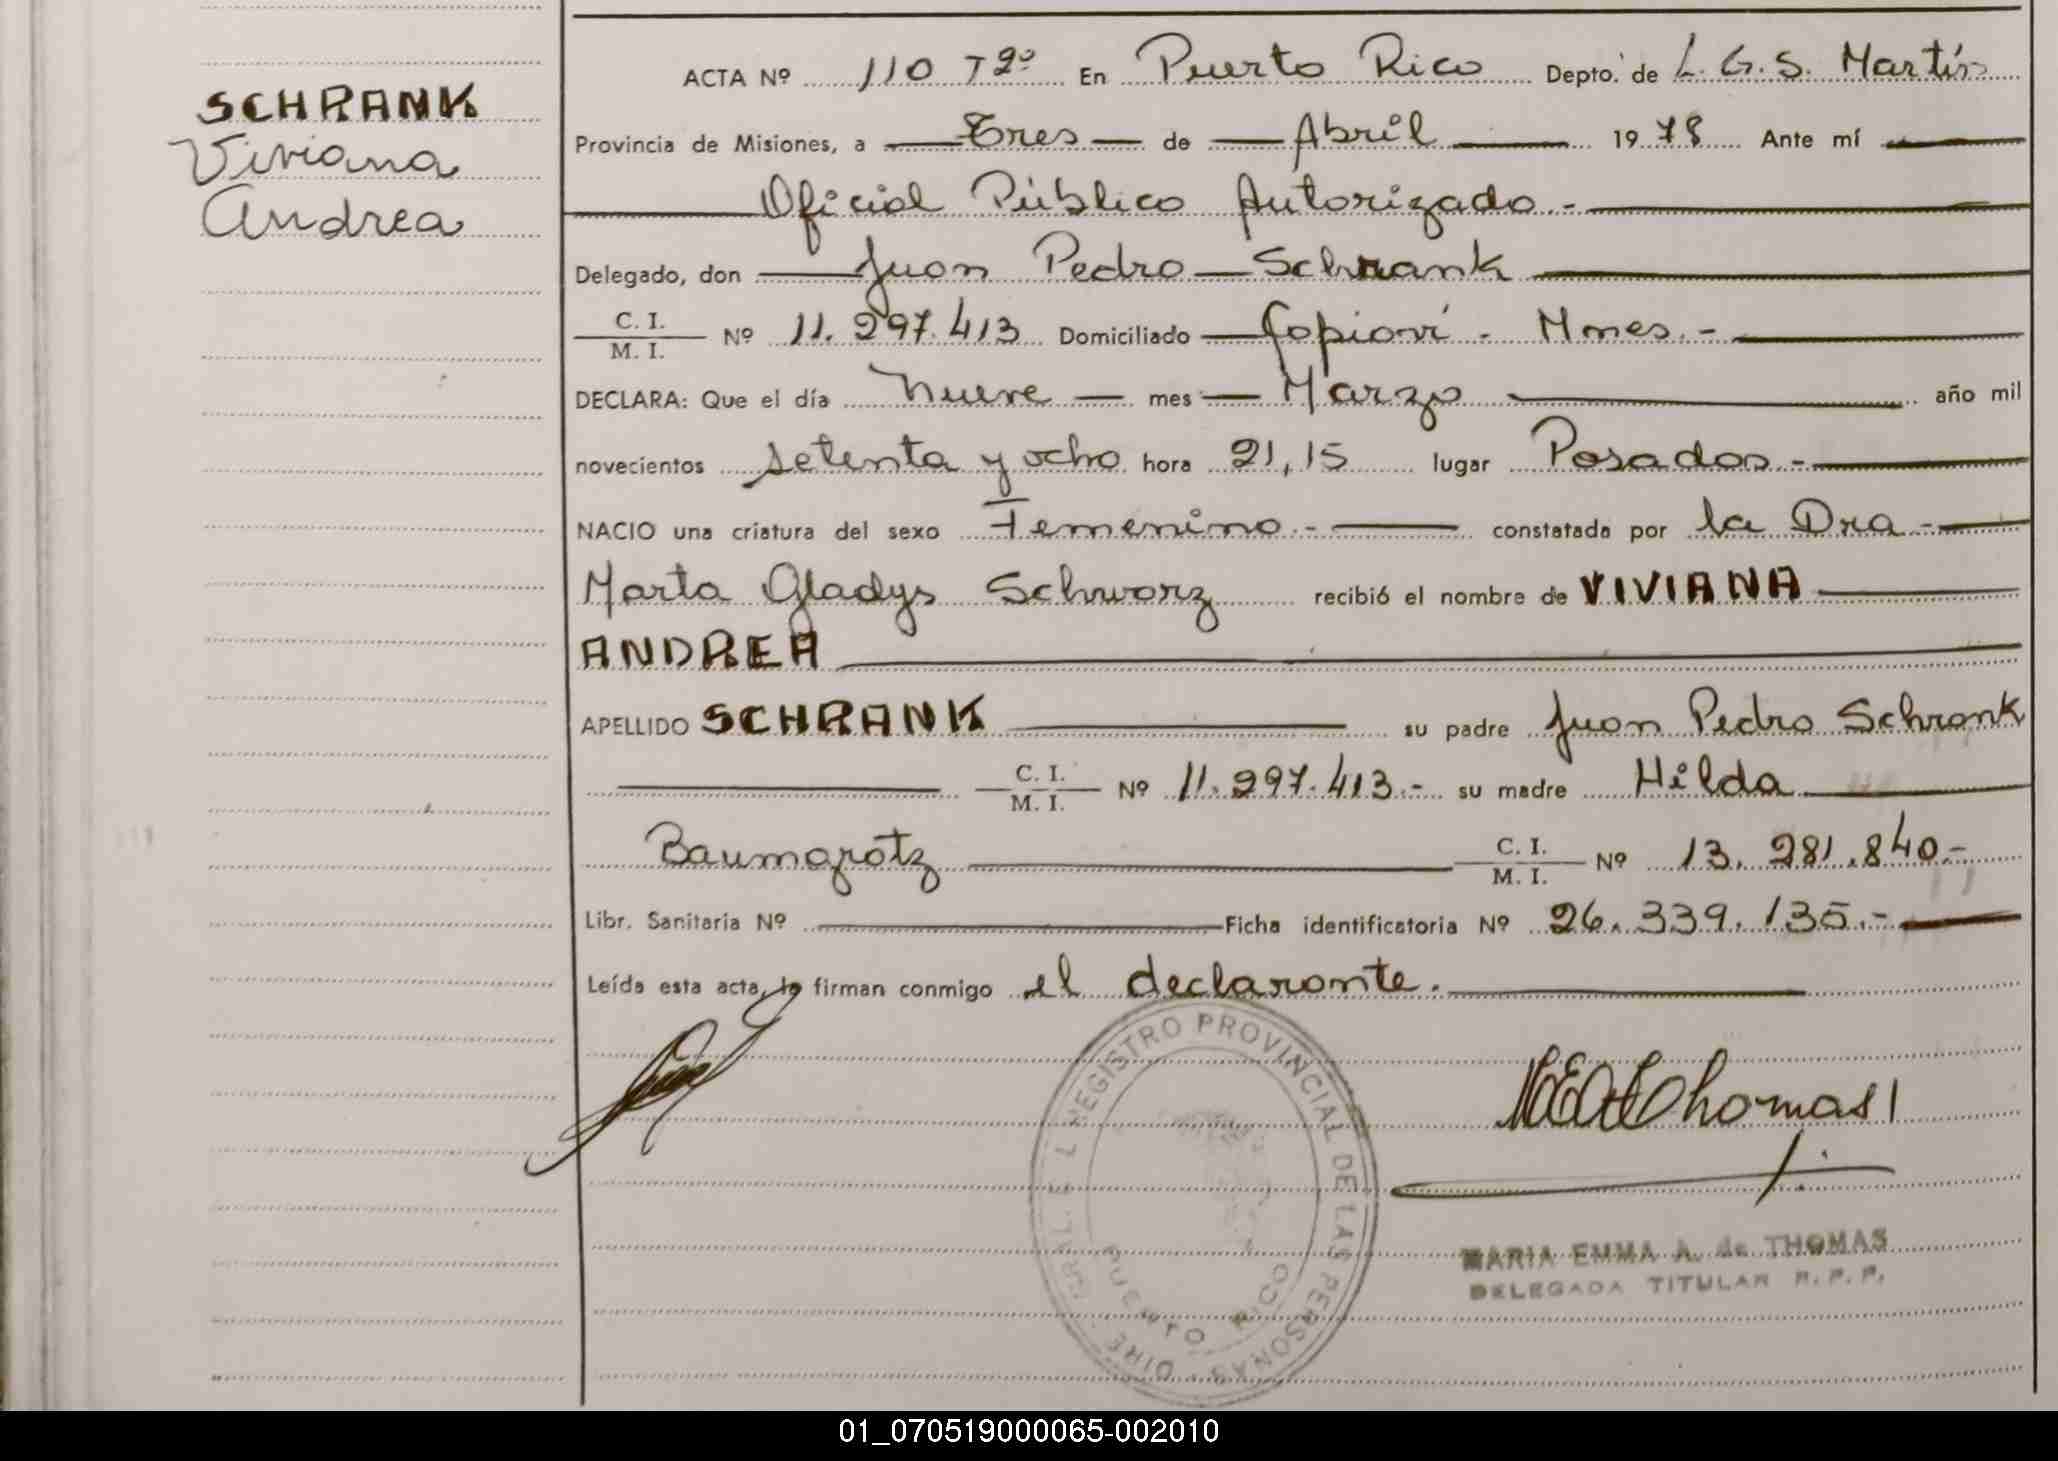 SCHRANK
Viviana
Andrea
ACTA Nº 110 Tº 2º En Puerto Rico Depto. de L. G. S. Martín
Provincia de Misiones, a Tres de Abril 1978 Ante mí
Oficial Público Autorizado.-
Delegado, don Juan Pedro Schrank
C. I.
M. I. Nº 11.297.413 Domiciliado Capioví - Mnes.-
DECLARA: Que el día nueve mes Marzo año mil
novecientos setenta y ocho hora 21,15 lugar Posadas -
NACIO una criatura del sexo Femenino.- constatada por la Dra -
Marta Gladys Schwarz recibió el nombre de VIVIANA
ANDREA
APELLIDO SCHRANK su padre Juan Pedro Schrank
C. I.
M. I. Nº 11.297.413.- su madre Hilda
Baumgratz C. I.
M. I. Nº 13.281.840.-
Libr. Sanitaria Nº Ficha identificatoria Nº 26.339.135.-
Leída esta acta, la firman conmigo el declarante.
REGISTRO PROVINCIAL DE LAS PERSONAS
PUERTO RICO
Thomas
MARIA EMMA A. de THOMAS
DELEGADA TITULAR R. P. P.
01_070519000065-002010